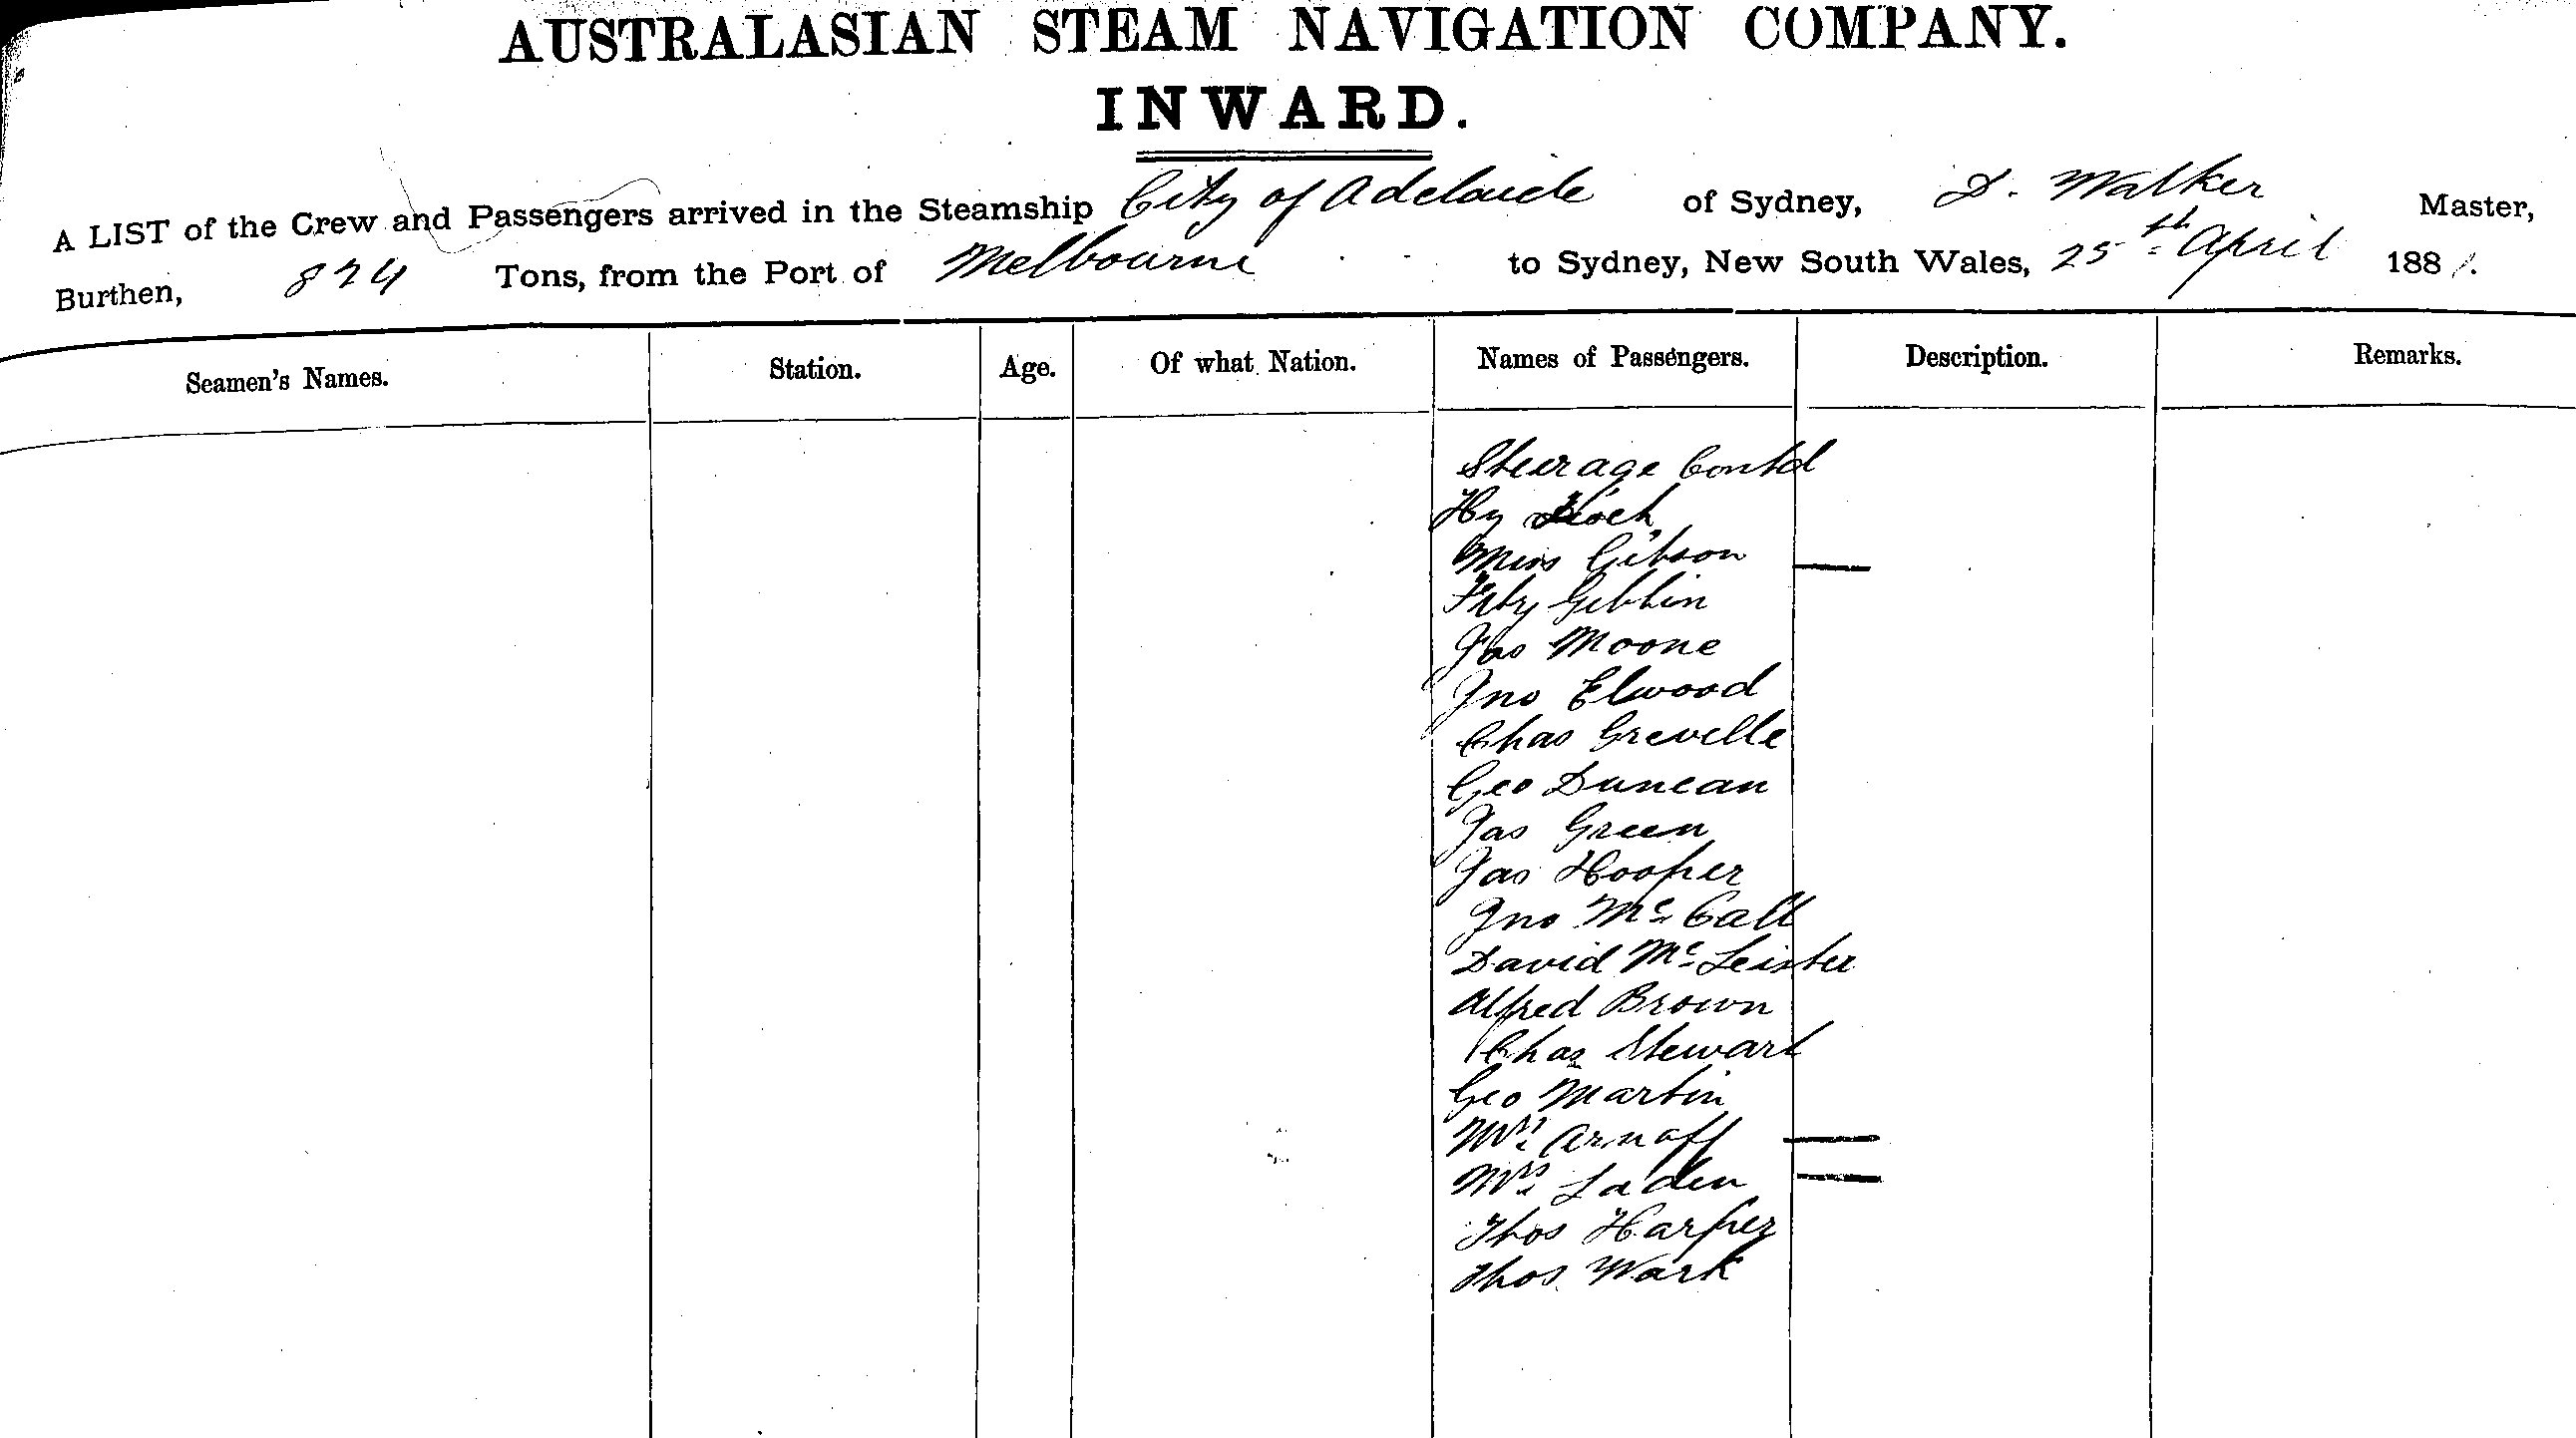 AUSTRALASIAN STEAM NAVIGATION COMPANY.
INWARD.
A LIST of the Crew and Passengers arrived in the Steamship City of Adelaide of Sydney, D. Walker Master,
Burthen, 824 Tons, from the Port of Melbourne to Sydney, New South Wales, 25th April 1881.
Seamen's Names. Station. Age. Of what Nation. Names of Passengers. Description. Remarks.
Steerage Contd
Hy
Miss Gibson —
Giblin
Jas Moone
Jno Elwood
Chas Grevelle
Geo Duncan
Jas Green
Jas Hooper
Jno McCall
David McLeister
Alfred Brown
Chas Stewart
Geo Martin
Mrs Arnoff —
Mrs Laden —
Thos Harper
Thos Wark